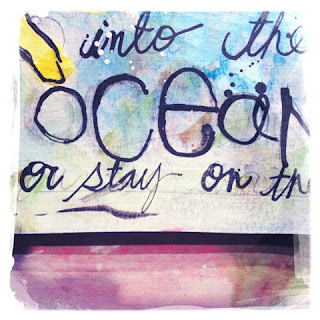 into the
oceän
or stay on the